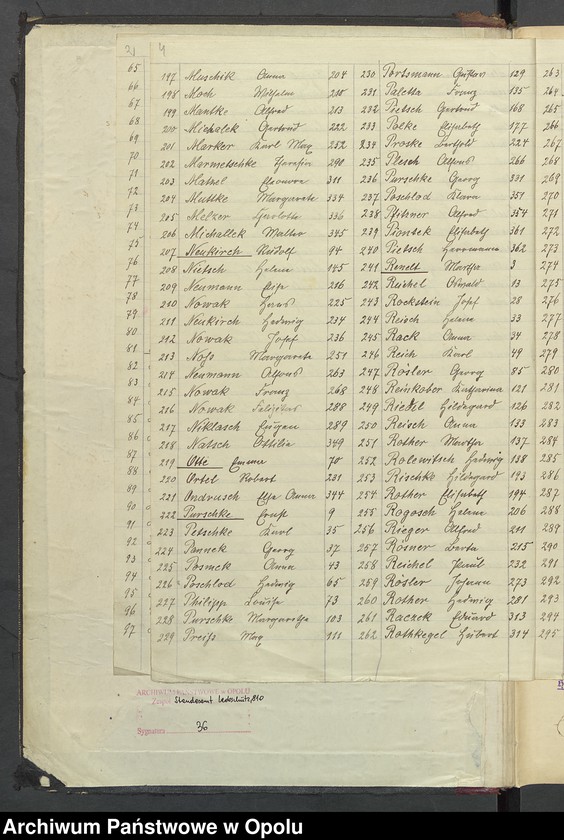 21 4
65
66
67
68
69
70
71
72
73
74
75
76
77
78
79
80
81
82
83
84
85
86
87
88
89
90
91
92
93
94
95
96
97
197 Muschik Anna 204
198 Moch Wilhelm 210
199 Mantke Alfred 213
200 Michalek Gertrud 222
201 Marker Karl Max 252
202 Marmetschke Serafin 290
203 Matzel Eleonore 311
204 Muttke Margarete 334
205 Melzer Charlotte 336
206 Michallek Walter 345
207 Neukirch Rudolf 94
208 Nietsch Helene 145
209 Neumann Else 216
210 Nowak Hans 225
211 Neukirch Hedwig 234
212 Nowak Josef 236
213 Noss Margarete 251
214 Neumann Alfons 263
215 Nowak Franz 268
216 Nowak Felizitas 288
217 Niklasch Eugen 289
218 Natsch Ottilie 349
219 Otte Emma 70
220 Ortel Robert 281
221 Ondrusch Else Anna 344
222 Purschke Ernst 9
223 Petschke Karl 35
224 Panneck Georg 37
225 Posneck Anna 43
226 Poschlod Hedwig 65
227 Philipp Louise 73
228 Purschke Margarethe 103
229 Preiss Max 111
230 Portsmann Gustav 129
231 Paletta Franz 135
232 Pietsch Gertrud 168
233 Polke Elisabeth 177
234 Proske Berthold 224
235 Plesch Alfons 266
236 Purschke Georg 331
237 Poschlod Klara 351
238 Pfitzner Alfred 354
239 Pantzek Elisabeth 361
240 Pietsch Herrmann 362
241 Renelt Martha 3
242 Reichel Oswald 13
243 Rockstein Josef 28
244 Reisch Helene 33
245 Rack Anna 34
246 Reich Karl 49
247 Rösler Georg 85
248 Reinkober Katharina 121
249 Riedel Hildegard 126
250 Reisch Anna 133
251 Rother Martha 137
252 Rolewitsch Hedwig 138
253 Rischke Hildegard 193
254 Rother Elisabeth 194
255 Rogosch Helene 206
256 Rieger Alfred 211
257 Rösner Berta 215
258 Reichel Paul 232
259 Rösler Johann 273
260 Rother Hedwig 281
261 Raczek Eduard 313
262 Rothkegel Herbert 314
263
264
265
266
267
268
269
270
271
272
273
274
275
276
277
278
279
280
281
282
283
284
285
286
287
288
289
290
291
292
293
294
295
ARCHIWUM PAŃSTWOWE w OPOLU
Zespół Standesamt Leobschütz, 810
Sygnatura 36
Archiwum Państwowe w Opolu